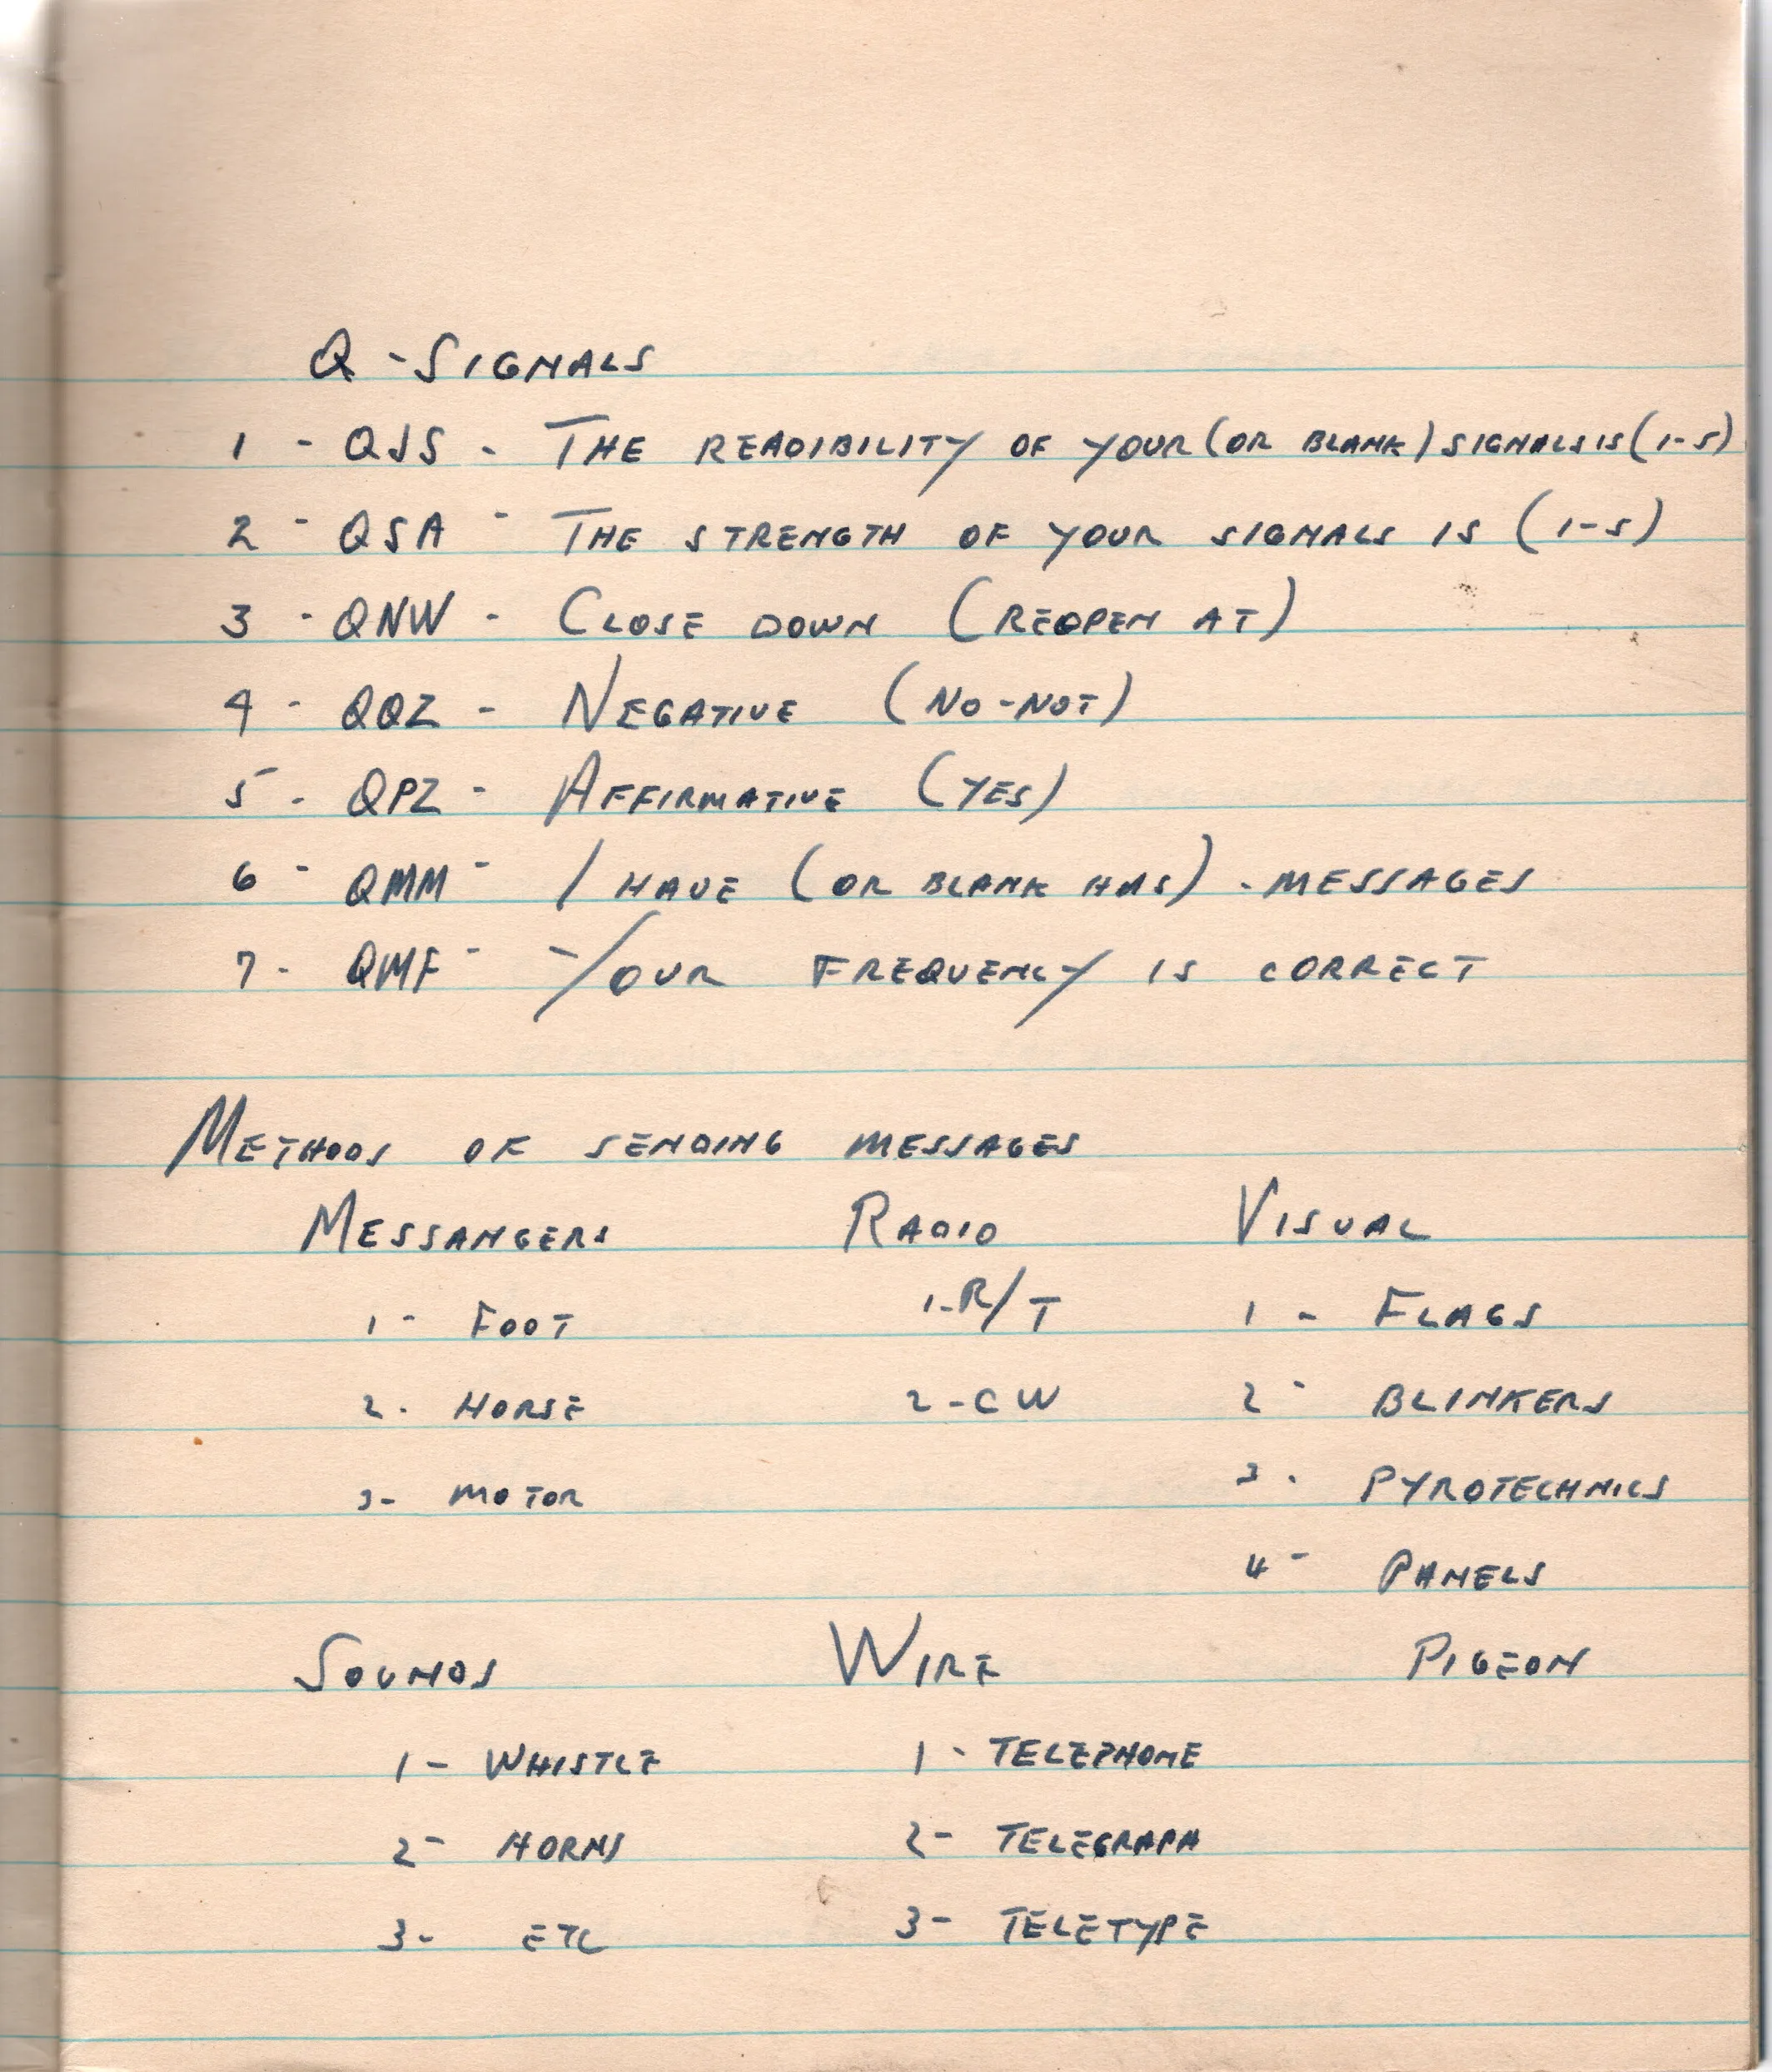 Q - SIGNALS
1 - QJS - THE READIBILITY OF YOUR (OR BLANK) SIGNALS IS (1-5)
2 - QSA - THE STRENGTH OF YOUR SIGNALS IS (1-5)
3 - QNW - CLOSE DOWN (REOPEN AT)
4 - QQZ - NEGATIVE (NO-NOT)
5 - QPZ - AFFIRMATIVE (YES)
6 - QMM - I HAVE (OR BLANK HAS) - MESSAGES
7 - QMF - YOUR FREQUENCY IS CORRECT
METHODS OF SENDING MESSAGES
MESSANGERS RADIO VISUAL
1 - FOOT 1-R/T 1 - FLAGS
2 - HORSE 2-CW 2 - BLINKERS
3 - MOTOR 3 - PYROTECHNICS
4 - PANELS
SOUNDS WIRE PIGEON
1 - WHISTLE 1 - TELEPHONE
2 - HORNS 2 - TELEGRAPH
3 - ETC 3 - TELETYPE